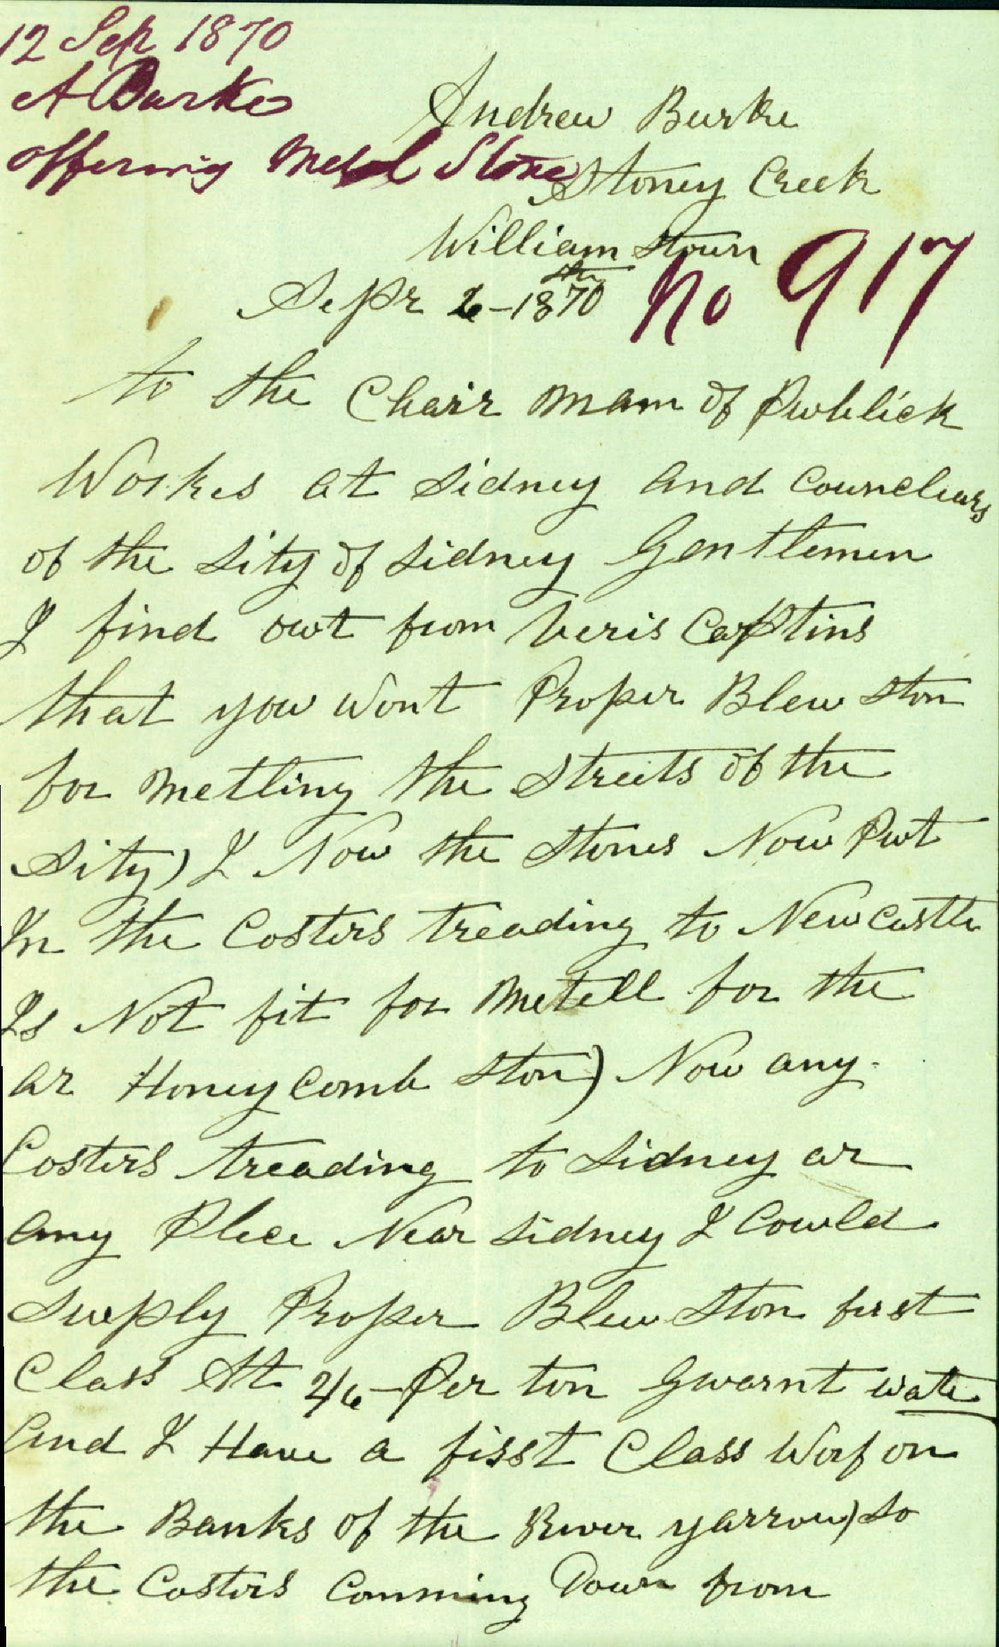 12 Sep 1870
A Burke
offering Metal Stone
Andrew Burke
Stoney Creek
William stown
Sepr 6th - 1870
No 917
to the Chair mam of Publick
Workes at Sidney and Councluars
of the Sity of Sidney Gentlemen
I find owt from Veris Captins
that you wont Proper Blew ston
for metling the Streets of the
Sity) I Now the Stones Now Put
In the Costers treading to Newcastle
Is Not fit for Metell for the
ar Honey comb ston) Now any
Costers treading to Sidney ar
any Plece Near Sidney I Cowld
Supply Proper Blew Ston furst
Class At 2/6 - Per ton Gwarnt wate
And I Have a fisst Class Worf on
the Banks of the River yarrow) so
the Costers Comming Down from